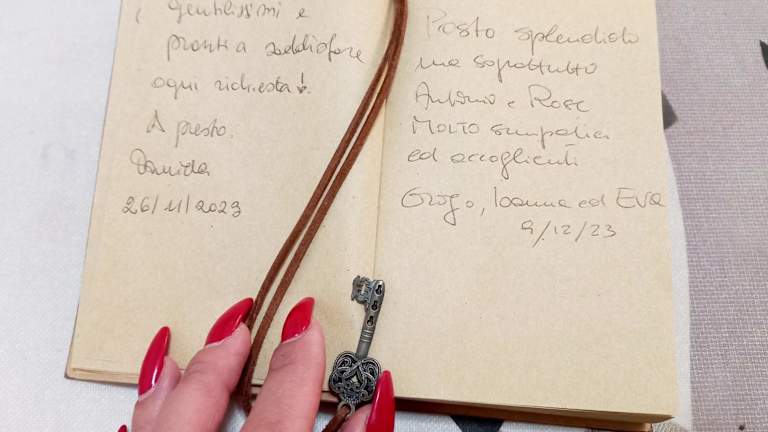 gentilissimi e
pronti a soddisfare
ogni richiesta!
A presto.
Daniela
26/11/2023
Posto splendido
ma soprattutto
Antonio e Rose
Molto simpatici
ed accoglienti
Ioanna ed Eva
9/12/23